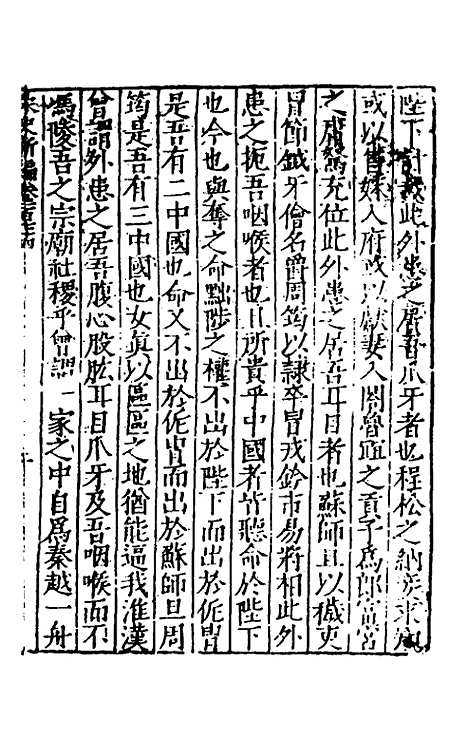 陛下計哉此外患之居吾爪牙者也程松之納求
或以售妹入府或以獻妻入閤魯之貢子爲郎富宮
之庸駑充位此外患之居吾耳目者也蘇師旦以穢吏
冒節鉞牙儈名爵周筠以隸卒冒戎鈐市易將相此外
患之扼吾咽喉者也且所貴乎中國者皆聽命於陛下
也今也與奪之命黜陟之權不出於陛下而出於侂冑
是吾有二中國也命又不出於侂冑而出於蘇師旦周
筠是吾有三中國也女真以區區之地猶能逼我淮漢
曾謂外患之居吾腹心股肱耳目爪牙及吾咽喉而不
馮陵吾之宗廟社稷乎曾謂一家之中自爲秦越一舟
宋史新編卷